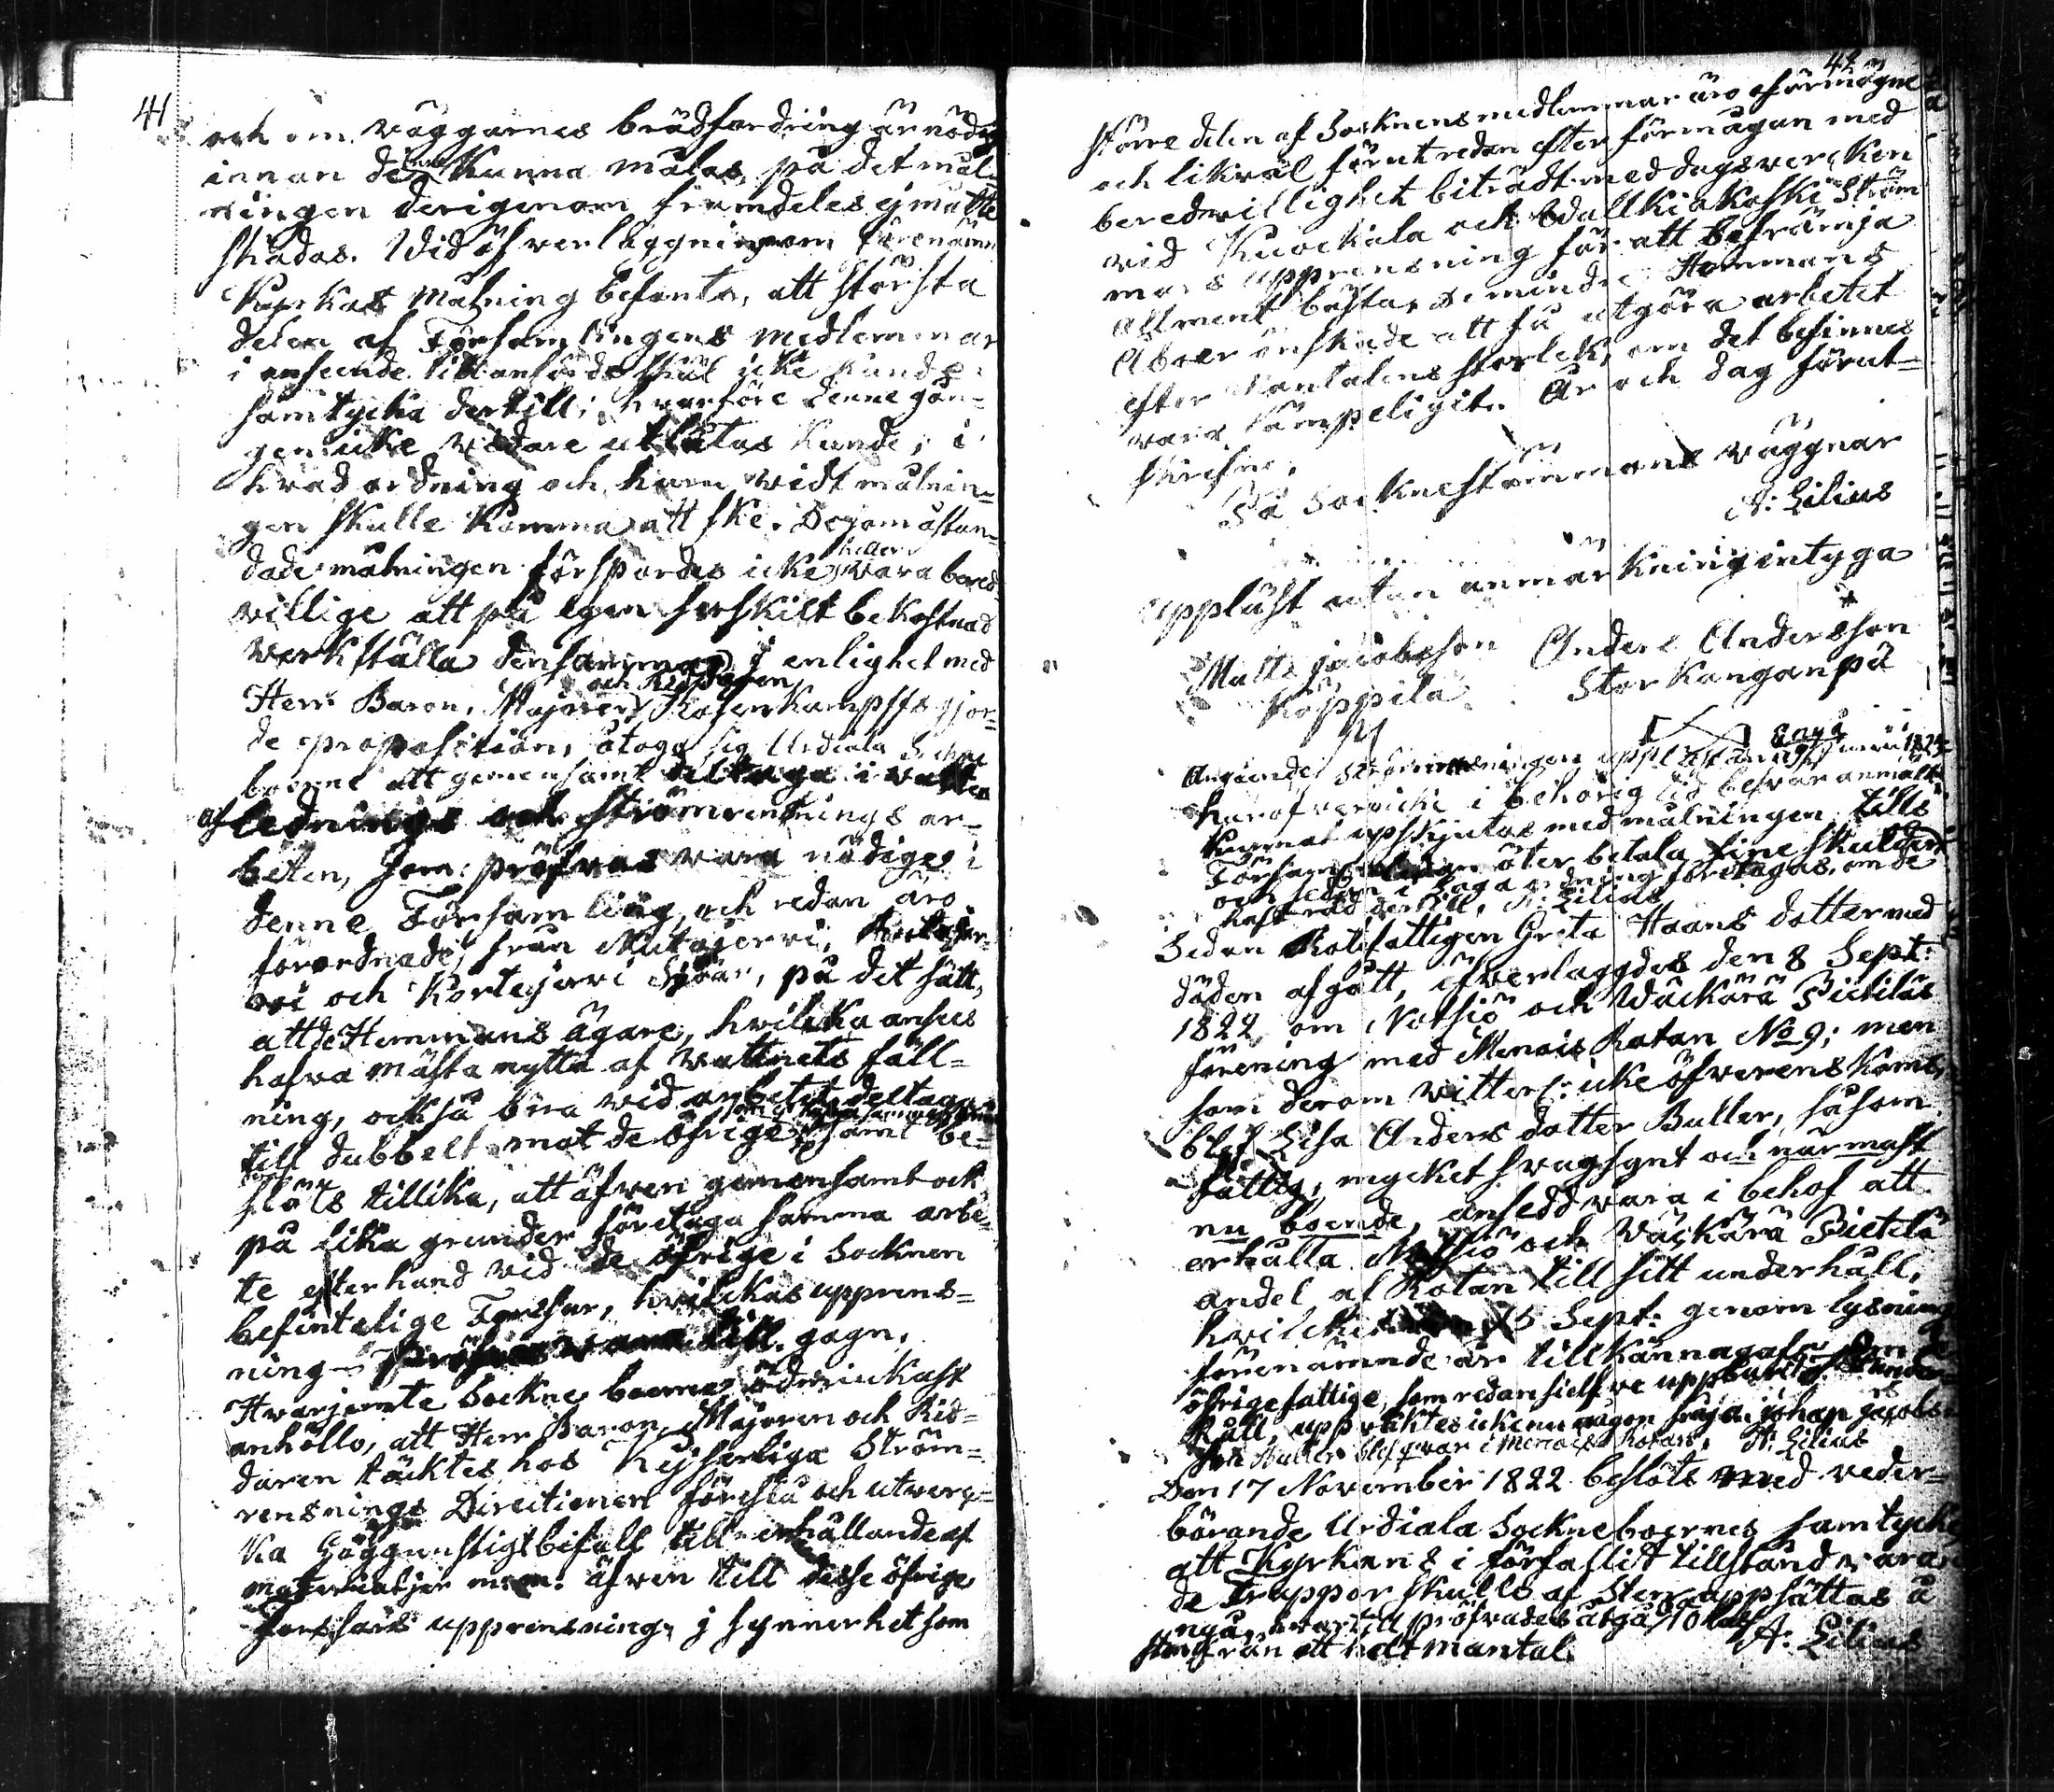 41
och om väggarnes brädfordring är nödig
innan de kunna målas, på det mål-
ningen derigenom framdeles ej måtte
skadas. Wid öfverläggning om förenämn
Kyrkas målning befants, att största
delen af Församlingens medlemmar
i anseende till anförde skäl icke kunde
samtycka dertill; hvarföre denne gån-
gen icke vidare utlåtas kunde, i
hvad ordning och huru vidt målnin-
gen skulle komma att ske. De som åstun-
dade målningen förspordes icke heller vara bered-
villige att på egen serskilt bekostnad
verkställa densamma. I enlighet med
Herr Baron, Majoren och Riddaren Kampffs gjor-
de proposition, åtogo sig Urdiala Sockne
boerne att gemensamt deltaga i vatten
aflednings och strömrensnings ar-
beten, som pröfvas vara nödige i
denne Församling, och redan äro
förordnade, från Nutajervi,
vi och Kortejervi Sjöar, på det sätt,
att de Hemmans ägare, hvilcka anses
hafva mästa nytta af vattnets fäll-
ning, också böra vid arbetet deltaga
till dubbelt mot de öfrige samt be-
slöts tillika, att äfven gemensamt och
på lika grunder företaga samma arbe-
te efterhand vid de öfrige i Socknen
befintelige Forssar, hvilckas upprens-
ning pröfvas vara till gagn.
Hvarjemte Sockne boerne ödmiukast
anhöllo, att Herr Baron, Majoren och Rid-
daren täcktes hos Kejserliga Ström-
rensnings Directionen föreslå och utverc-
ka höggunstigt bifall till erhållande af
materialjer m:m: äfven till desse öfrige
forssars upprensning, i synnerhet som
42
större delen af Socknens medlemmar äro oförmögne
och likväl förut redan efter förmågan med
beredvillighet biträdt med dagsvercken
vid Kuockala och Wallkiakoski Ström
mars upprensning för att befrämja
allment bästa. De mindre Hemmans
Åboer önskade att få utgöra arbetet
efter Mantalens storlek, om det befinnes
vara lämpeligit. År och dag förut-
skrefne.
På Socknestämmans väggnar
A: Lilius
Uppläst utan anmärkning intyga
Matts Jacobsson Anders Andersson
Köppilä Stor Kanganpä
Angående strömrensningen uppläst
häröfver icke i behörig tid besvär anmält
Kunnat upskjutas med målningen tills
Församlingen åter betala sine skulder
och sedan i laga ordning företagas, om de
haft råd dertill. A: Lilius
Sedan Rotefattigen Greta Haans dotter med
döden afgått, öfverlaggdes den 8 Sept:
1822, om Notsiö och Wäckärä Pietiläs
förening med Menois Rotan No 9; men
som derom vitterl: icke öfverenskoms,
blef Lisa Anders dotter Buller, såsom
fattig, mycket svagsynt och närmast
nu boende, ansedd vara i behof att
erhålla Notsiö och Väckärä Pietilä
andel af Rotan till sitt underhåll,
hvilcket 15 Sept: genom lysning
förenämnde år tillkännagafs. Den
öfrige fattige, som redan sielfve uppburit Under-
håll, uppräktes icke nu någon
Buller blef qvar i Menois Rotan. A: Lilius
Den 17 November 1822 beslöts med veder-
börande Urdiala Sockneboernes samtycke
att Kyrkans i förfallit tillstånd varan
de Trappor skulle af Sten uppsättas å
nyo, hvartill pröfvades åtgå 10 lass
sten från ett helt mantal. A: Lilius